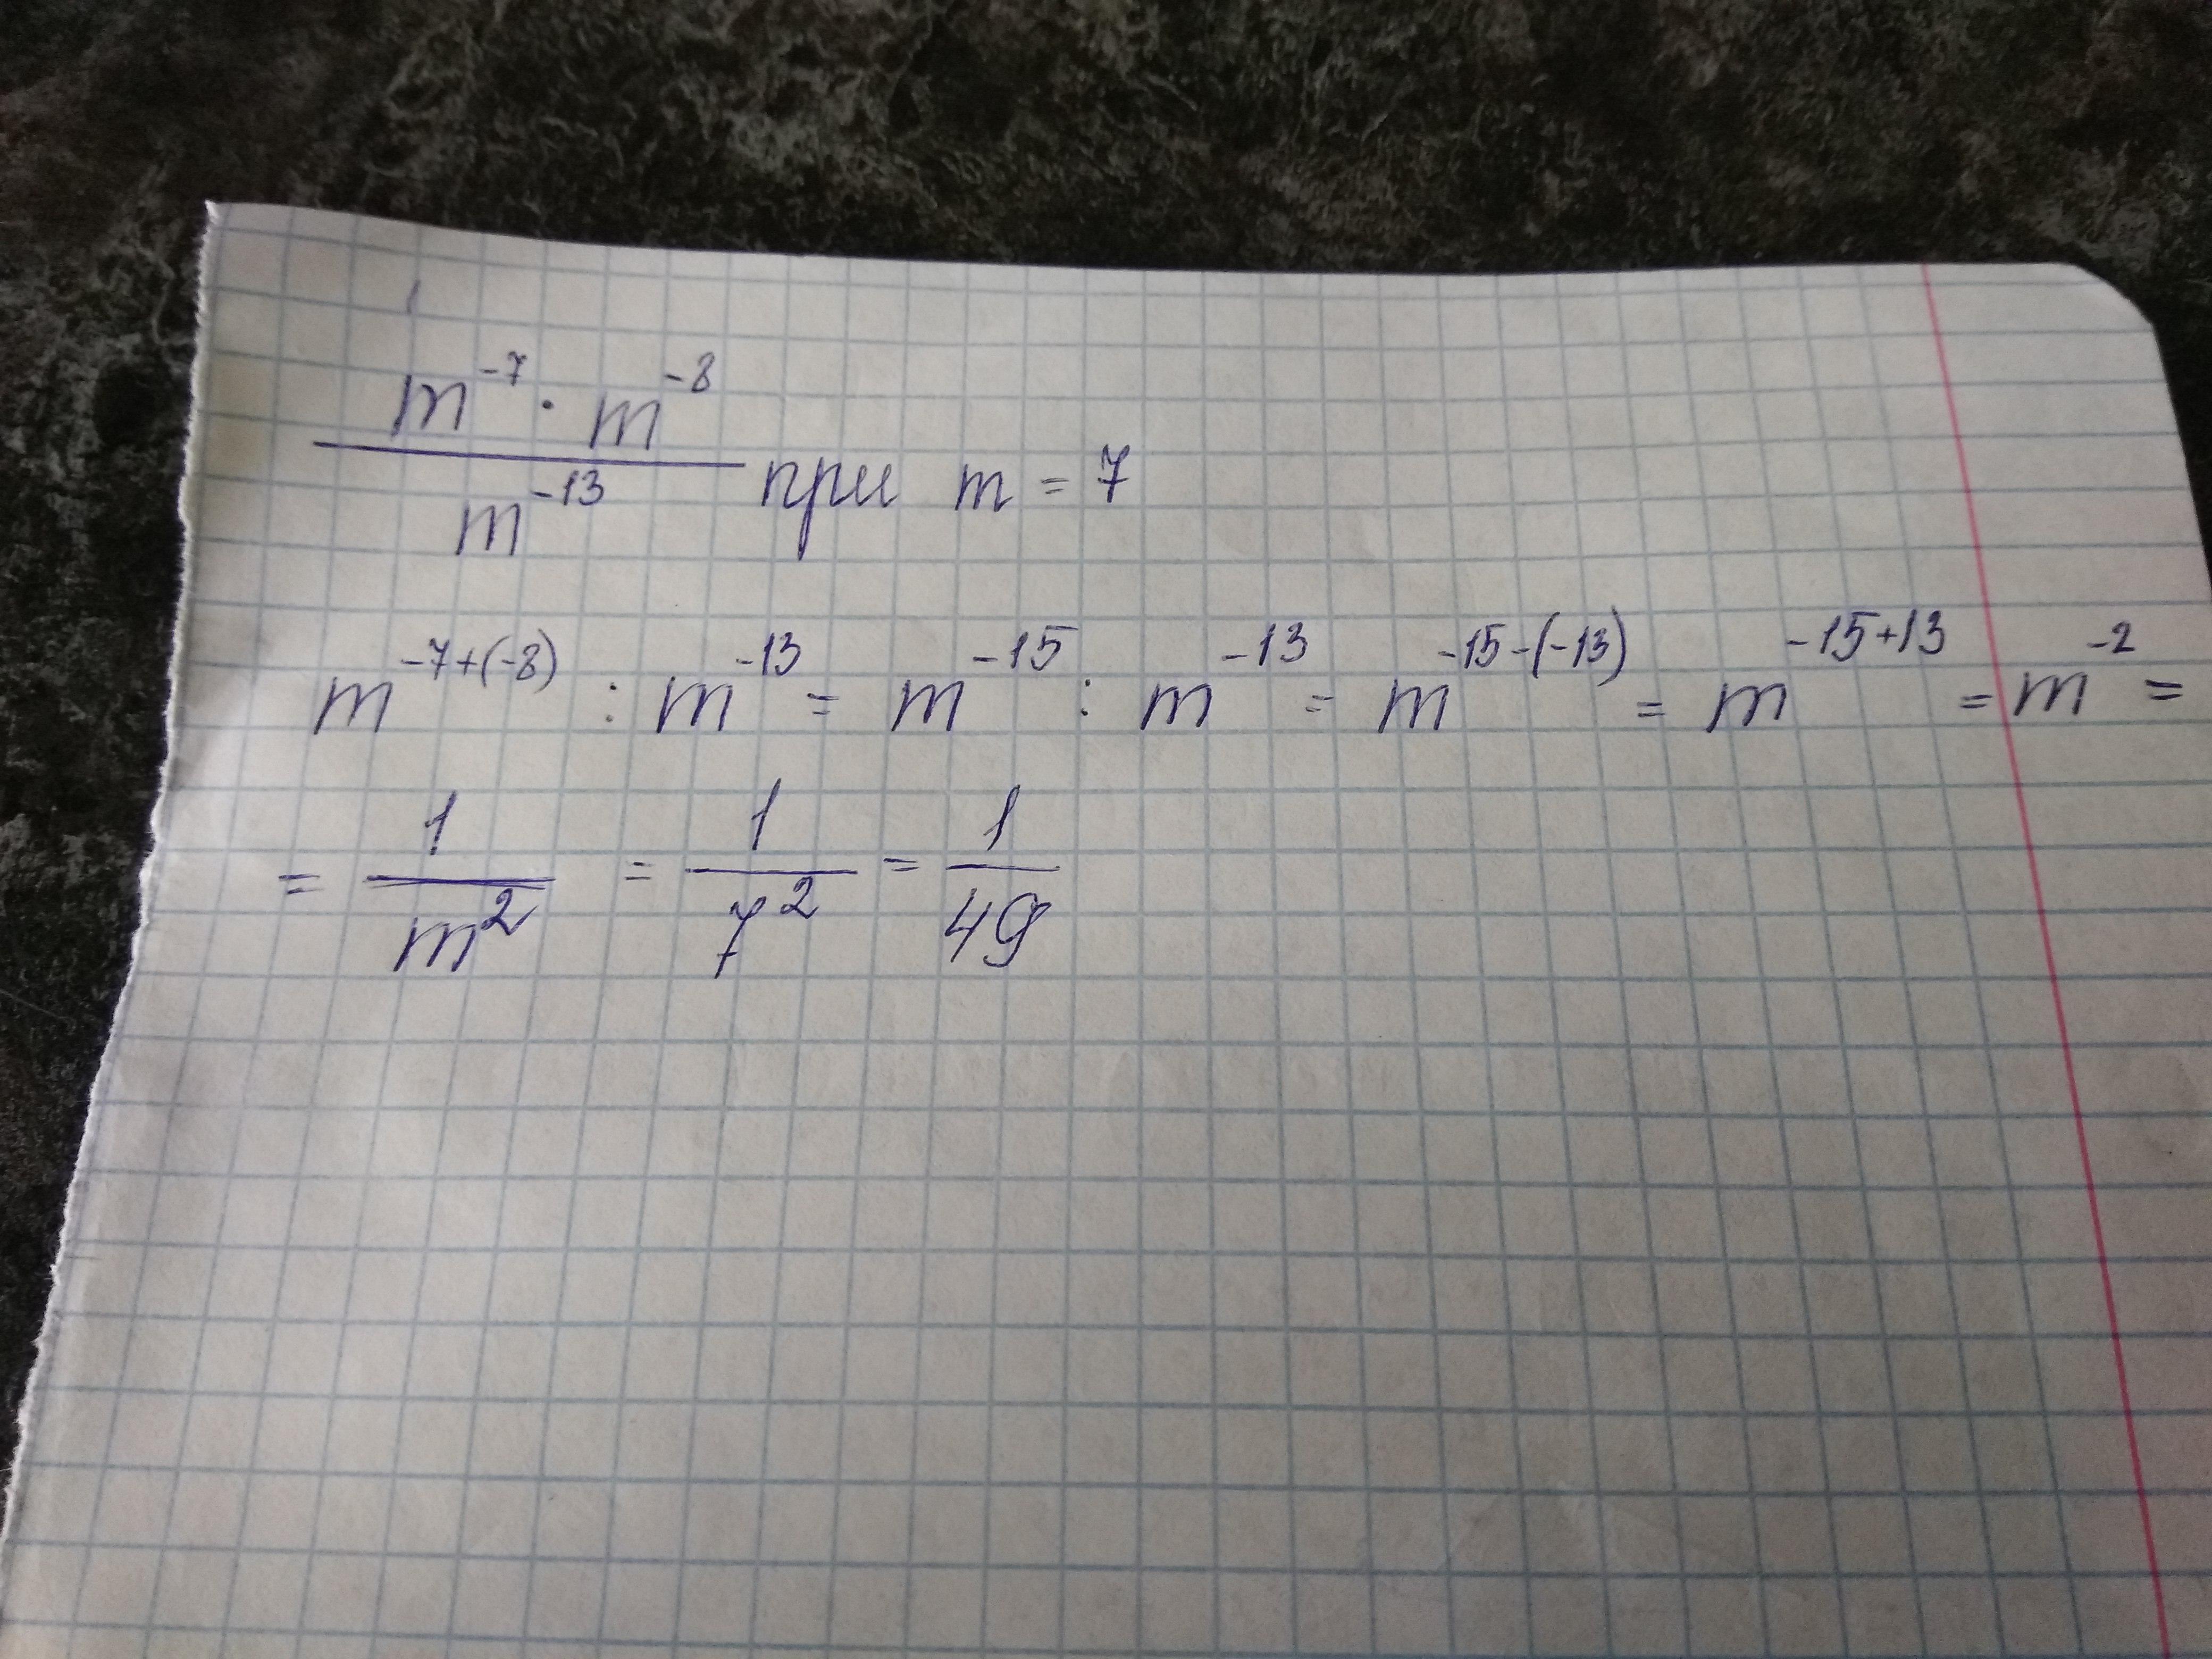 m⁻⁷ · m⁻⁸
m⁻¹³ при m = 7
m⁻⁷⁺⁽⁻⁸⁾ : m⁻¹³ = m⁻¹⁵ : m⁻¹³ = m⁻¹⁵⁻⁽⁻¹³⁾ = m⁻¹⁵⁺¹³ = m⁻² =
= 1/m² = 1/7² = 1/49